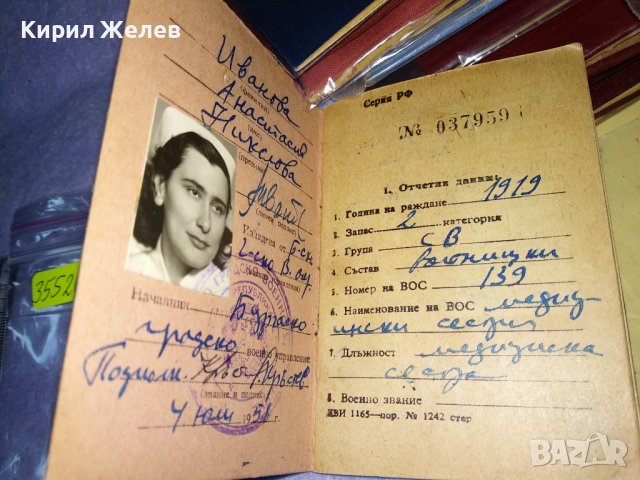 Кирил Желев
Иванова
(фамилия)
Анастасия
(име)
Никлова
(презиме)
Издадена от
Началник
Бургаско
градско военно управление
Подполк.
(звание и подпис)
4 юли 195 г.
3552
Серия РФ
№ 037959
1. Отчетни данни:
1. Година на раждане 1919
2. Запас 2 категория
3. Група СВ
4. Състав Войнишки
5. Номер на ВОС 139
6. Наименование на ВОС медици-
нски сестри
7. Длъжност медицинска
сестра
8. Военно звание
ЖВИ 1165—пор. № 1242 стер
BAZAR